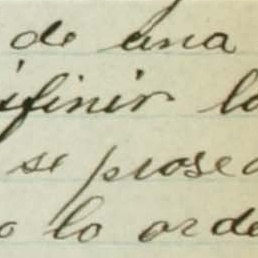 de una
ifinir lo
se prosed
o lo orde